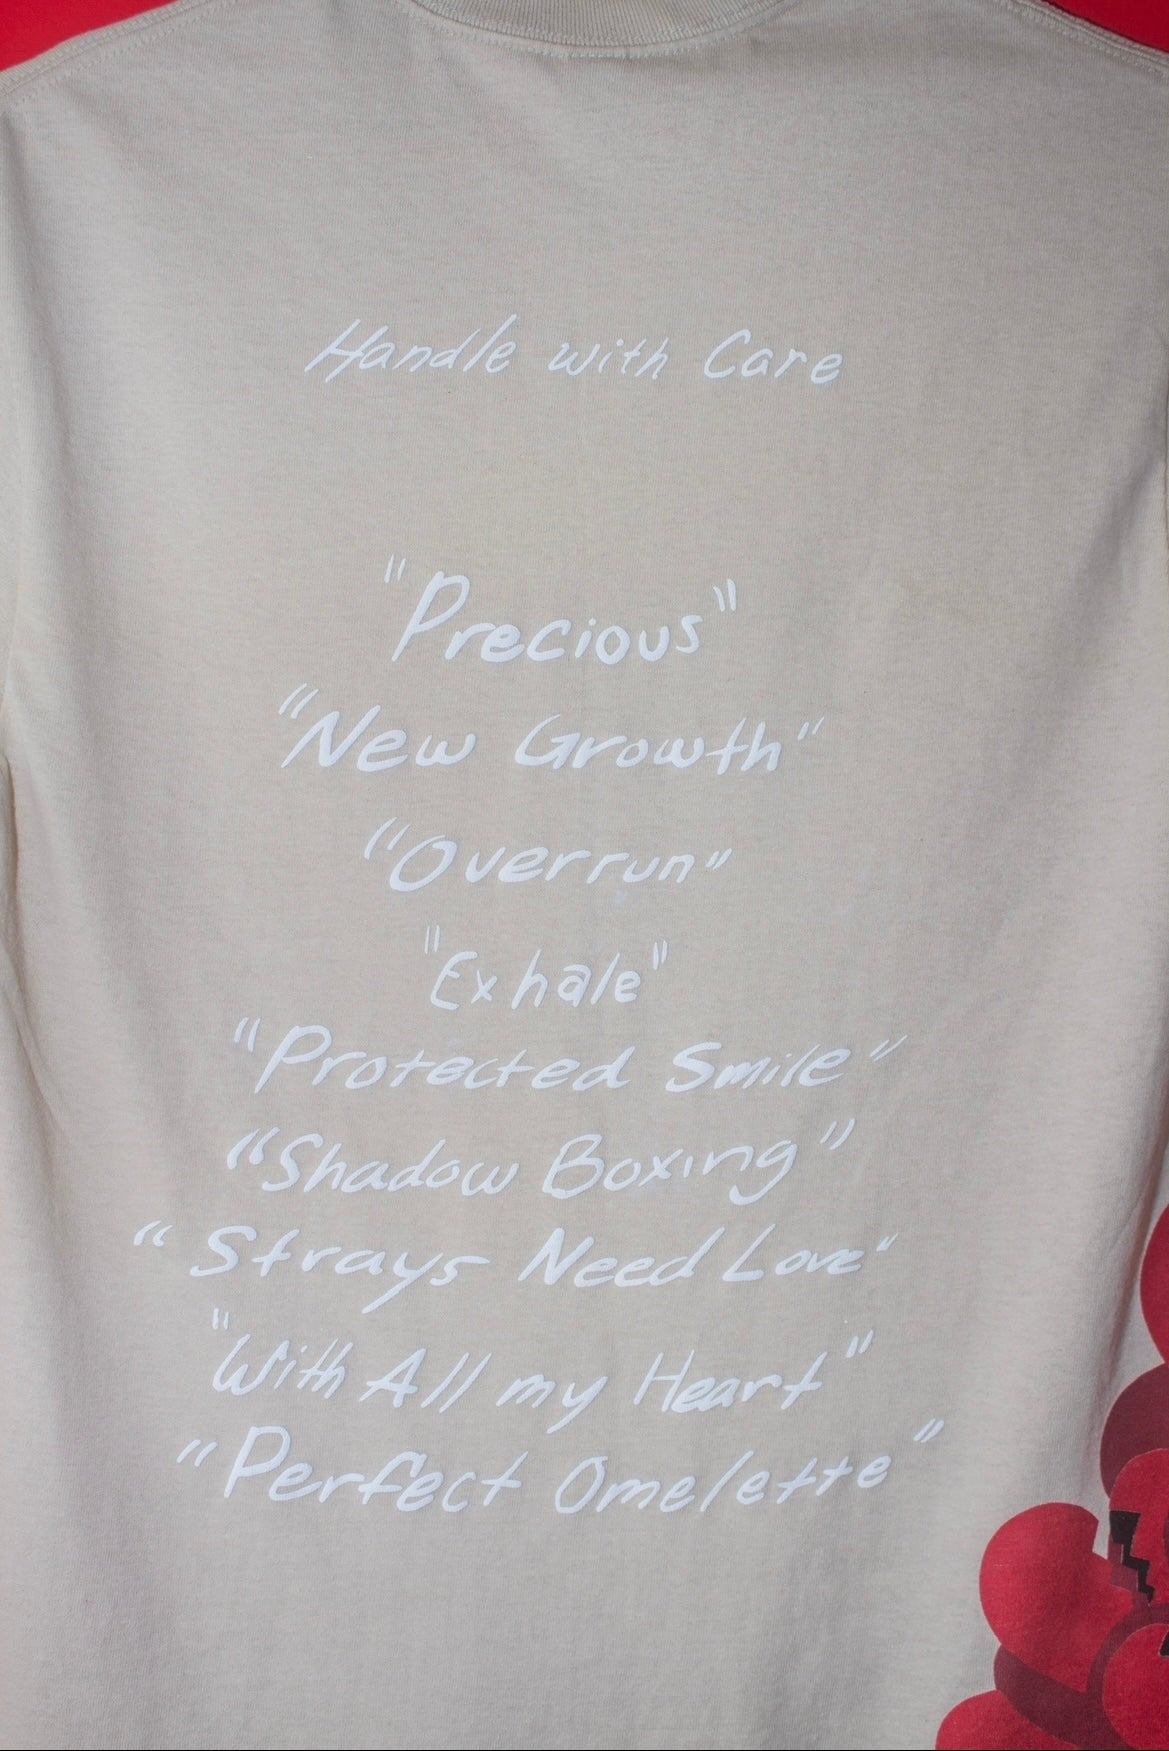 Handle with Care
"Precious"
"New Growth"
"Overrun"
"Exhale"
"Protected Smile"
"Shadow Boxing"
"Strays Need Love"
"With All my Heart"
"Perfect Omelette"